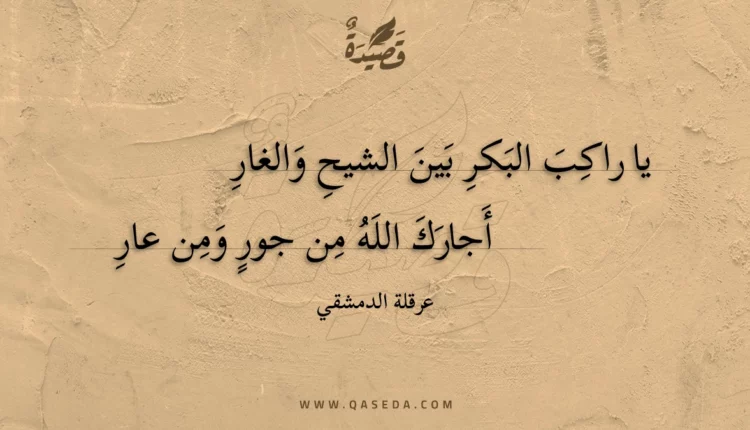 قَصِيدَةٌ
يا راكِبَ البَكرِ بَينَ الشيحِ وَالغارِ
أَجارَكَ اللَهُ مِن جورٍ وَمِن عارِ
عرقلة الدمشقي
WWW.QASEDA.COM